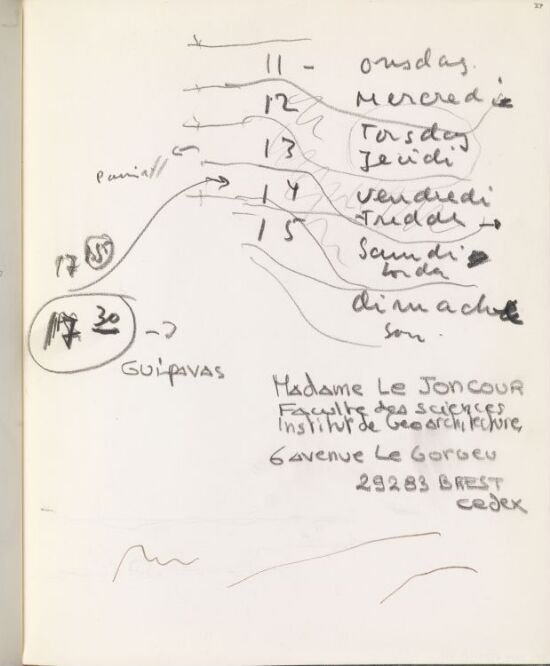 27
11 - onsdag.
12 Mercredi
Torsdag
13 Jeudi
14 Vendredi
Freddi
15 Samdi
lorda
dimach
son.
17 15
17 30 ->
GUIPAVAS
Madame Le JONCOUR
Faculte des sciences
Institut de Geoarchitecture,
6 avenue Le Gorgeu
29283 BREST
cedex